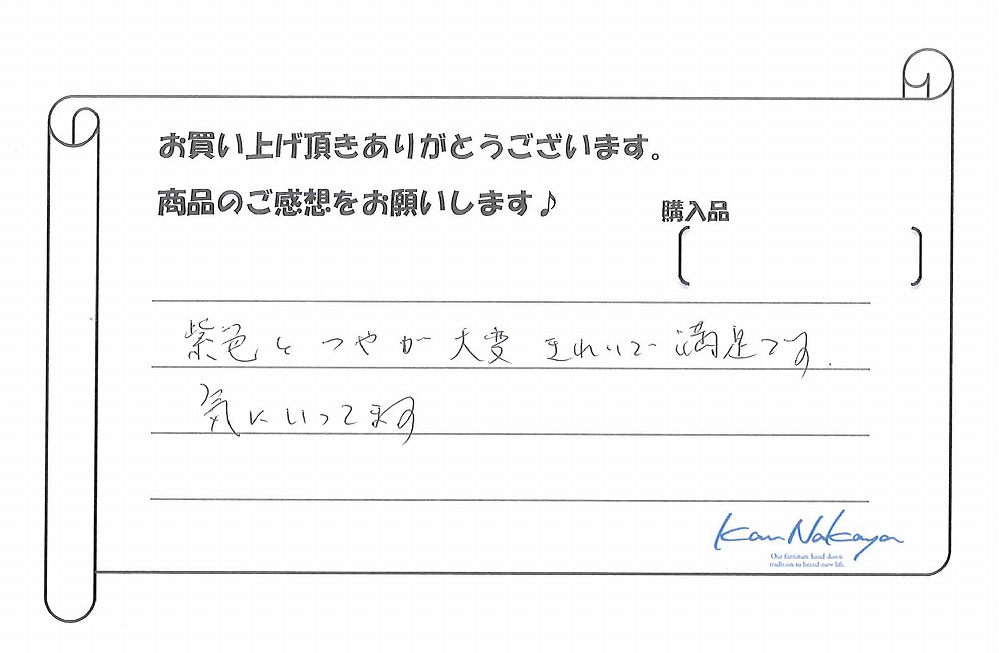 お買い上げ頂きありがとうございます。
商品のご感想をお願いします♪
購入品
紫色とつやが大変きれいで満足です.
気にいってます
Kan Nakaya
Our furniture hand down
tradition to brand-new life.